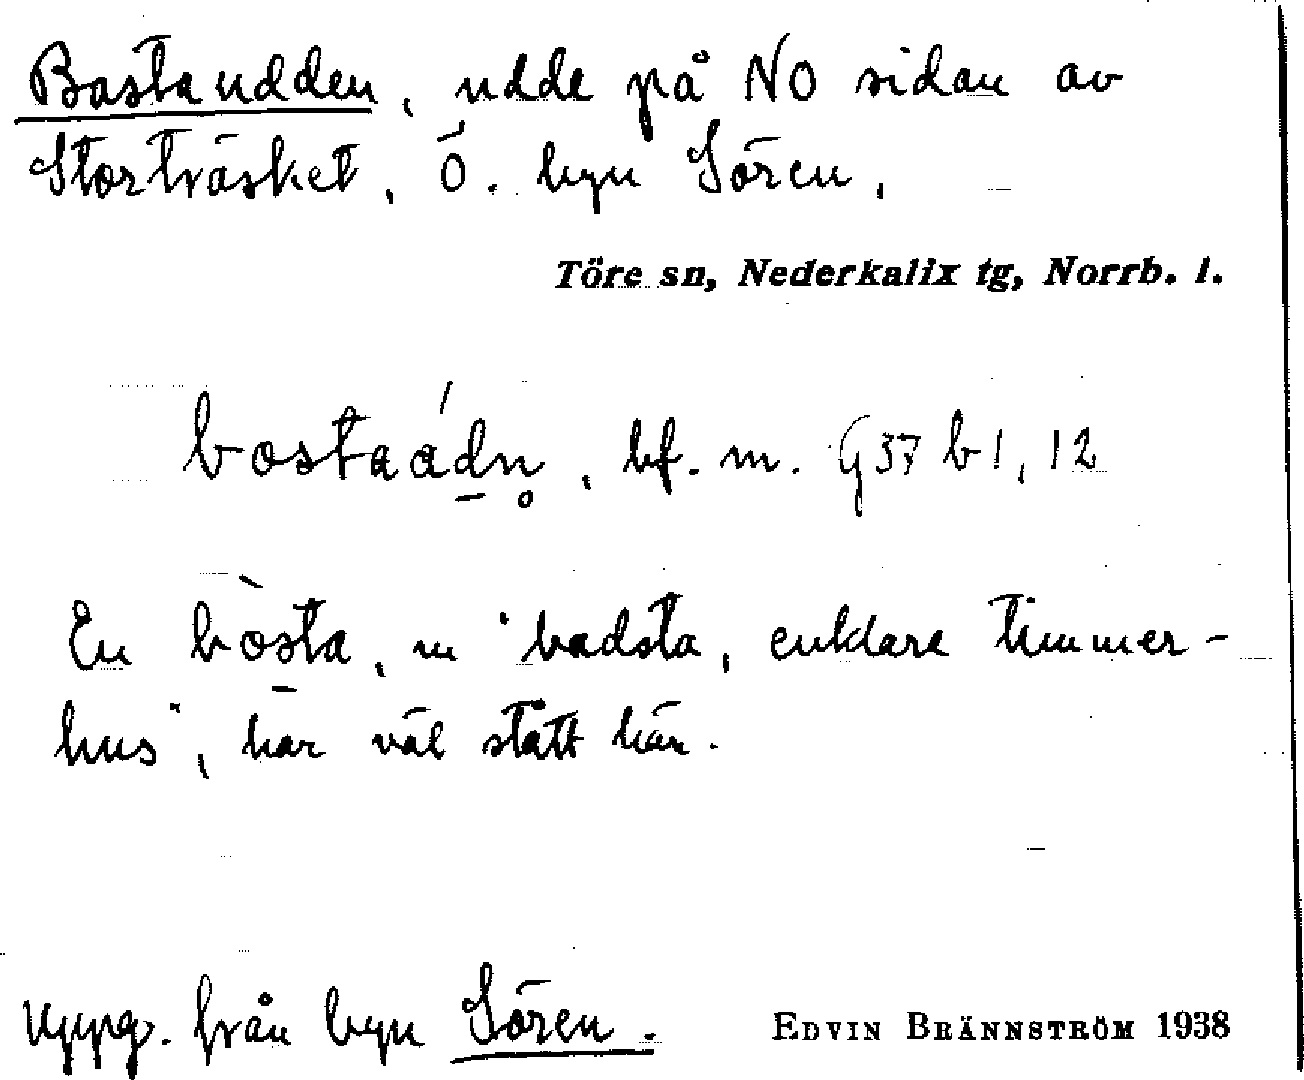 Bastaudden, udde på NO sidan av
Storträsket, Ö. byn Sören,
Töre sn, Nederkalix tg, Norrb. l.
bostaádn̥, bf. m. G37 b1, 12
En bòsta, m "badsta, enklare timmer-
hus", har väl stått här.
Uppg. från byn Sören.
EDVIN BRÄNNSTRÖM 1938